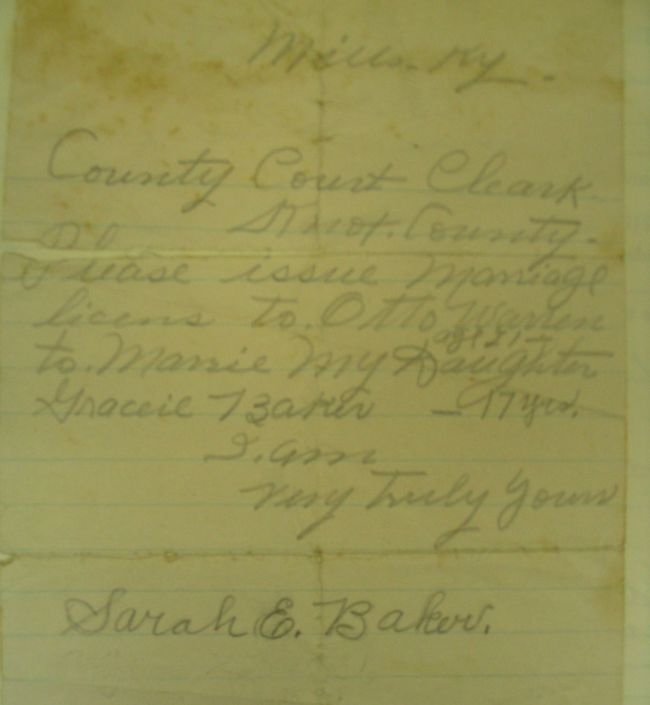 Mills. Ky.
County Court Cleark.
Knox. County.
Please issue Marriage
licens to. Otto Warren
age 21
to. Marrie My Daughter
Graceie Baker - 17 yrs.
I. am
Very Truly Yours
Sarah E. Baker.